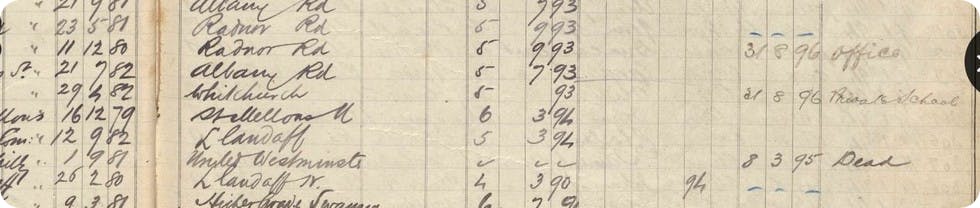 21 9 81 Albany Rd 5 7 93
" 23 5 81 Radnor Rd 5 9 93
" 11 12 80 Radnor Rd 5 9 93 31 8 96 Office
" 21 7 82 Albany Rd 5 7 93
" 29 4 82 Whitchurch 5 93 31 8 96 Private School
16 12 79 St Mellons 6 3 94
12 9 82 Llandaff 5 3 94
" 1 9 81 United Westminste 8 3 95 Dead
" 26 2 80 Llandaff N. 4 3 90 94
" 9 3 81 Higher Grade Swansea 6 7